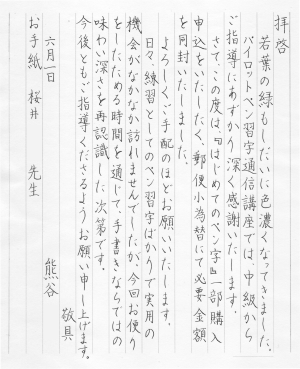 拝啓
若葉の緑もしだいに色濃くなってきました。
パイロットペン習字通信講座では中級から
ご指導にあずかり深く感謝いたします。
さて、この度は、『はじめてのペン字』一部購入
申込をいたしたく、郵便小為替にて必要金額
を同封いたしました。
よろしくご手配のほどお願いいたします。
日々、練習としてのペン習字ばかりで実用の
機会がなかなか訪れませんでしたが、今回お便り
をしたためる時間を通じて、手書きならではの
味わい深さを再認識した次第です。
今後ともご指導くださるようお願い申し上げます。
敬具
六月一日
熊谷
お手紙 桜井 先生